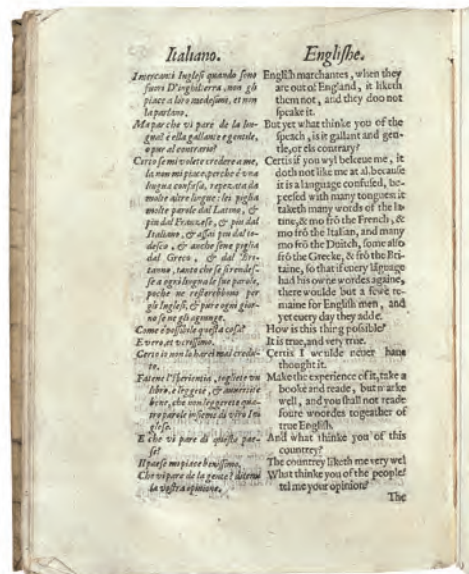 Italiano.
I mercanti Inglesi quando sono
fuori D'inghilterra, non gli
piace a loro medesimi, et non
la parlano.
Ma par che vi pare de la lin-
gua? è ella gallante e gentile,
o pur al contrario?
Certo se mi volete credere a me,
la non mi piace, perche è vna
lingua confusa, repezata da
molte altre lingue: lei piglia
molte parole dal Latino, &
piu dal Franzese, & piu dal
Italiano, & assai piu dal to-
desco, & anche sene piglia
dal Greco, & dal Bri-
tanno, tanto che se si rendes-
se a ogni lingua le sue parole,
poche ne resterebbono per
gli Inglesi, & pure ogni gior-
no se ne gli agiunge.
Come è possibile questa cosa?
E vero, et verissimo.
Certo io non lo harei mai crede-
to.
Fatene l'isperientia, togliete vn
libro, e leggete, & auuertite
bene, che non leggerete qua-
tro parole insieme di vero In-
glese.
E che vi pare di questo pae-
se?
Il paese mi piace benissimo.
Che vi pare de la gente? ditemi
la vostra opinione.
Englishe.
English marchantes, when they
are out of England, it liketh
them not, and they doo not
speake it.
But yet what thinke you of the
speach, is it gallant and gen-
tle, or els contrary?
Certis if you wyl beleeue me, it
doth not like me at al, because
it is a language confused, be-
peesed with many tongues: it
taketh many words of the la-
tine, & mo frõ the French, &
mo frõ the Italian, and many
mo frõ the Duitch, some also
frõ the Greeke, & frõ the Bri-
taine, so that if euery lãguage
had his owne wordes againe,
there woulde but a fewe re-
maine for English men, and
yet euery day they adde.
How is this thing possible?
It is true, and very true.
Certis I woulde neuer haue
thought it.
Make the experience of it, take a
booke and reade, but marke
well, and you shall not reade
foure woordes togeather of
true English.
And what thinke you of this
countrey?
The countrey liketh me very wel
What thinke you of the people?
tel me your opinion?
The